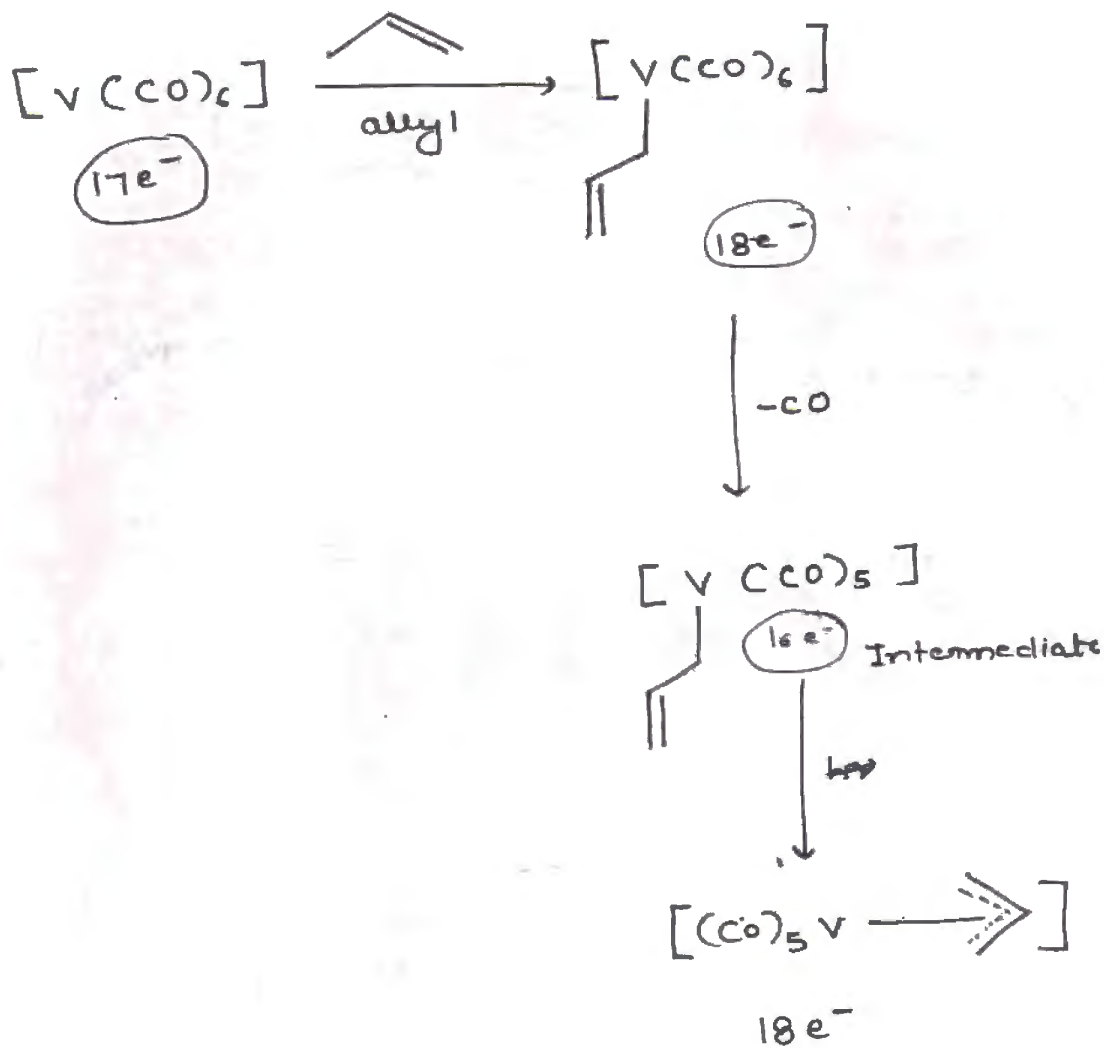 [V(CO)6]
17e-
allyl
[V(CO)6]
18e-
-CO
[V (CO)5]
16 e-
Intermediate
[(CO)5 V
]
18e-